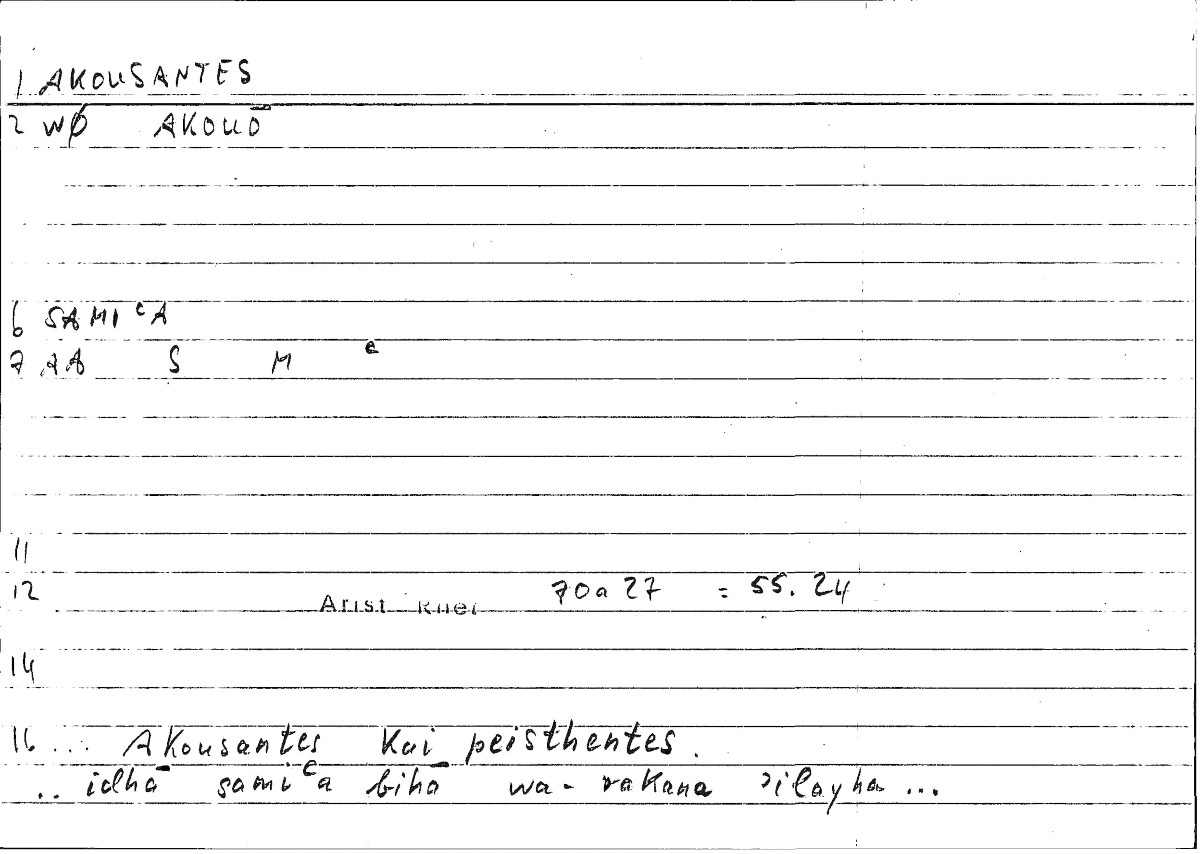 1 AKOUSANTES
2 WØ AKOUŌ
6 SAMIᶜA
7 AA S M ᶜ
11
12 Arist Rhet 70a 27 = 55.24
14
16 ... Akousantes Kai peisthentes.
.. idhā samiᶜa bihā wa-rakana ʾilayha ...